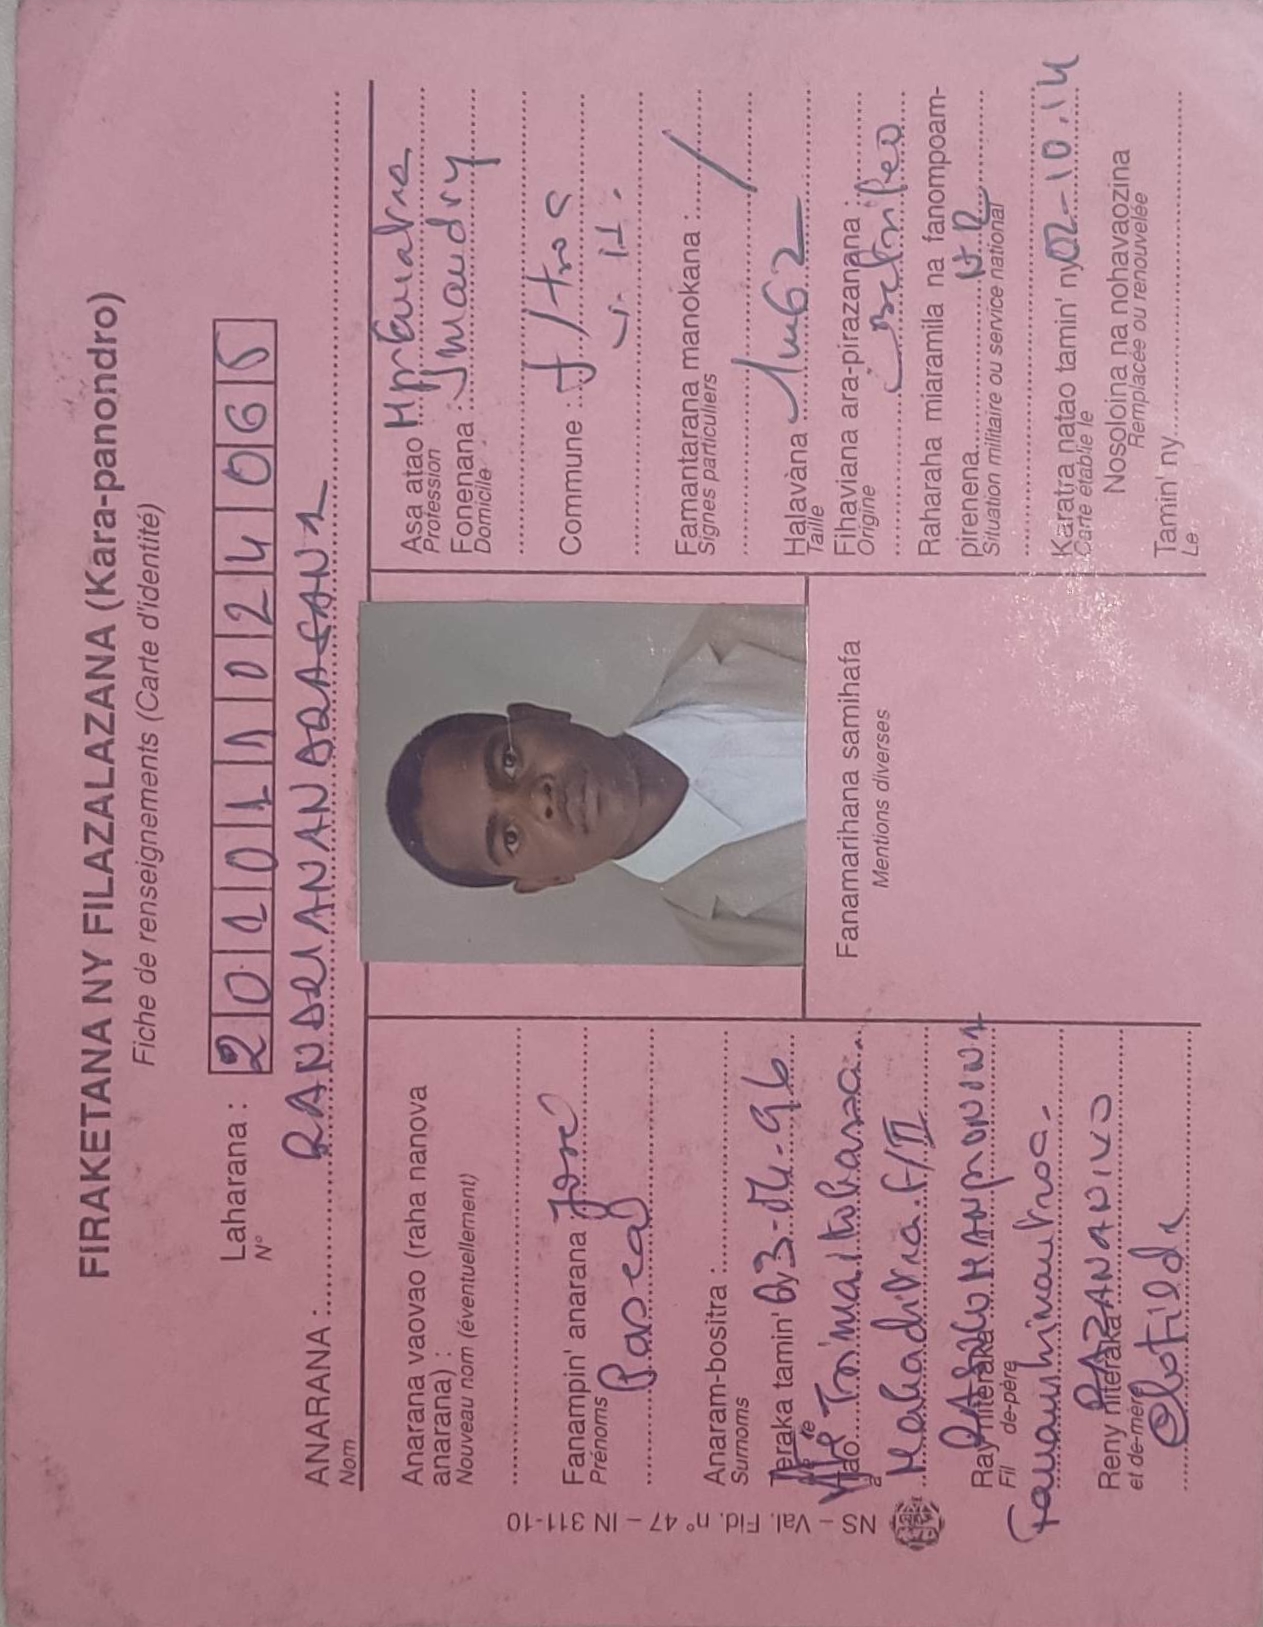 FIRAKETANA NY FILAZALAZANA (Kara-panondro)
Fiche de renseignements (Carte d'identité)
Laharana : 201011024065
N°
ANARANA :
Nom
Anarana vaovao (raha nanova
anarana) :
Nouveau nom (éventuellement)
Fanampin' anarana : José
Prénoms
Pascal
Anaram-bositra :
Surnoms
Teraka tamin' ny 03-04-96
Tao Tsimaitohasoa
Mahaditra. F/II
Ray niteraka
Fil de-père
Reny niteraka RAZANANIVO
et de-mère
Clotilde
NS – Val. Fid. n° 47 – IN 311-10
Fanamarihana samihafa
Mentions diverses
Asa atao
Profession
Fonenana : Imandry
Domicile
Commune :
Famantarana manokana : /
Signes particuliers
Halavàna 1m62
Taille
Fihaviana ara-pirazanana :
Origine
Betsileo
Raharaha miaramila na fanompoam-
pirenena
Situation militaire ou service national
Karatra natao tamin' ny 02-10.14
Carte établie le
Nosoloina na nohavaozina
Remplacée ou renouvelée
Tamin' ny
Le